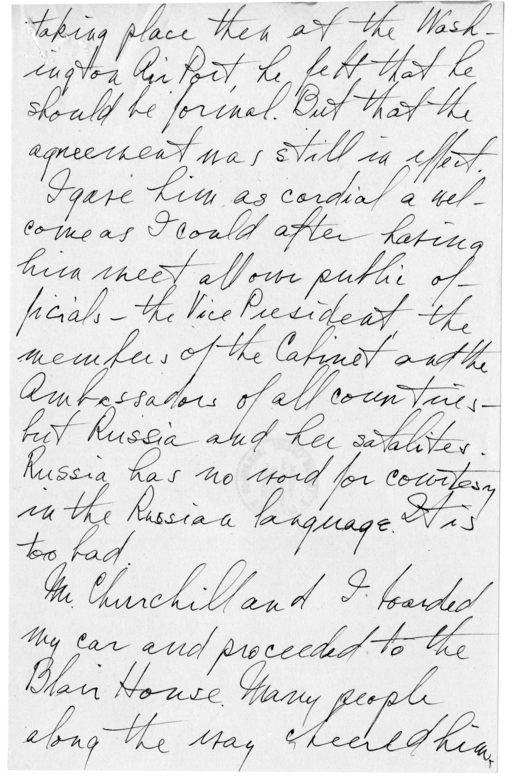 taking place then at the Wash-
ington Air Port, he felt that he
should be formal. But that the
agreement was still in effect.
I gave him as cordial a wel-
come as I could after having
him meet all our public of-
ficials - the Vice President, the
members of the Cabinet and the
Ambassadors of all countries -
but Russia and her satalites.
Russia has no word for courtesy
in the Russian language. It is
too bad.
Mr. Churchill and I boarded
my car and proceeded to the
Blair House. Many people
along the way cheered him